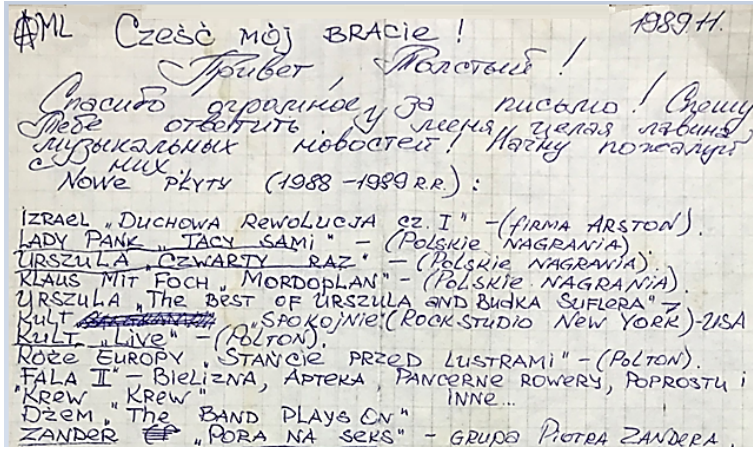 AML Cześć mój BRACIE ! 1989.11.
Привет Толстый !
Спасибо огромное за письмо ! Спешу
Тебе ответить. У меня целая лавина
музыкальных новостей ! Начну пожалуй
с них.
Nowe płyty (1988-1989 R.R.) :
IZRAEL „DUCHOWA REWOLUCJA cz. I" - (FIRMA ARSTON).
LADY PANK „TACY SAMI" - (POLSKIE NAGRANIA)
URSZULA „CZWARTY RAZ" - (POLSKIE NAGRANIA)
KLAUS MIT FOCH „MORDOPLAN" - (POLSKIE NAGRANIA).
URSZULA „THE BEST OF URSZULA AND BUDKA SUFLERA" →
KULT „SPOKOJNIE" (ROCK STUDIO NEW YORK) - USA
KULT „LIVE" - (POLTON).
RÓŻE EUROPY „STAŃCIE PRZED LUSTRAMI" - (POLTON).
FALA II" - BIELIZNA, APTEKA, PANCERNE ROWERY, POPROSTU i
"KREW „KREW" INNE...
DŻEM „THE BAND PLAYS ON"
ZANDER „PORA NA SEKS" - GRUPA PIOTRA ZANDERA.